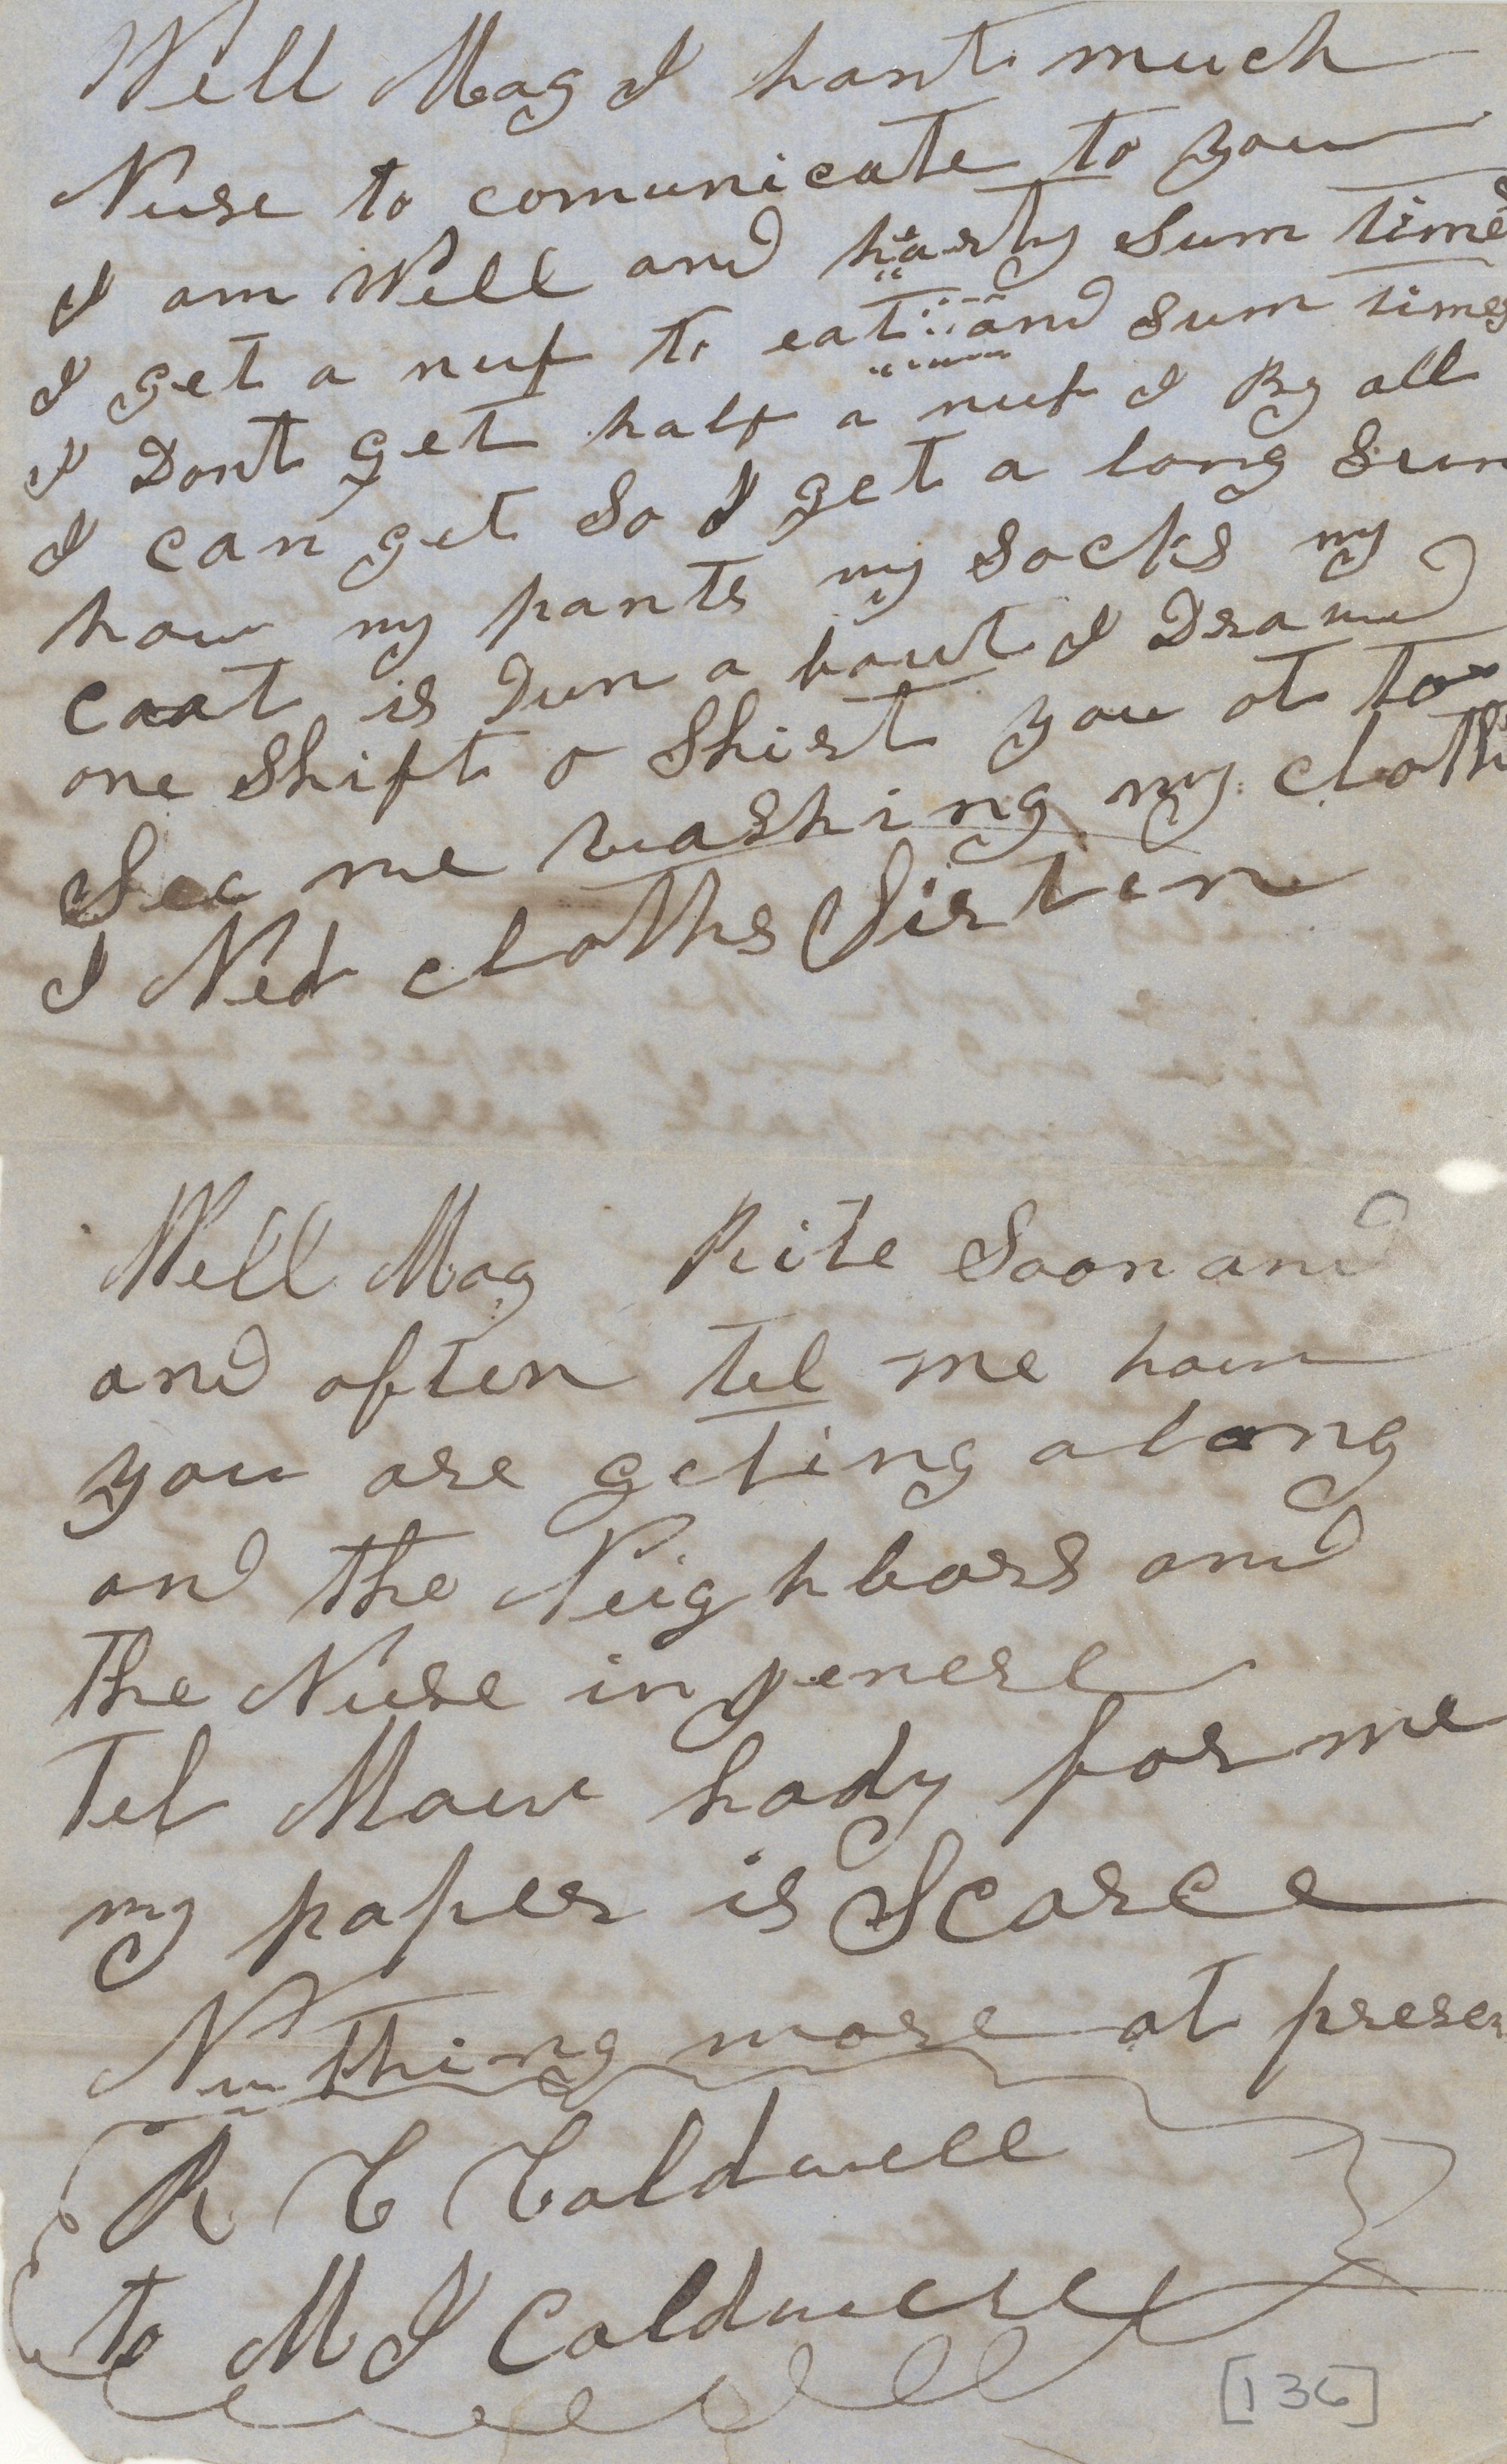 Well Mag I hant much
Nuse to comunicate to you
I am Well and harty Sum times
I get a nuf to eat and Sum times
I Dont get half a nuf I By all
I can get So I get a long Sum
how my pants my Socks my
coat is Dun a bout I Drawd
one Shift o Shirt you ot to
See me washing my cloths
I Ned cloths Sirten
Well Mag Rite Soon and
and often tel me how
you are geting along
and the Neighbors and
the Nuse in generl
Tel Maw hady for me
my paper is Scarce
Nuthing more at presen
R C Caldwell
to M J Caldwell
[136]